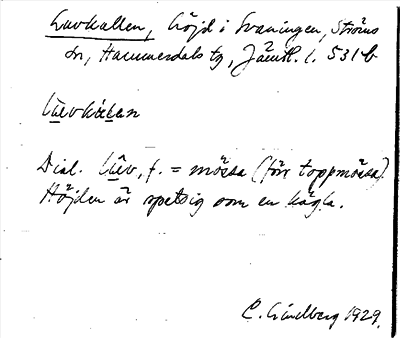 Luvkallen, höjd i Svaningen, Ströms
sn, Hammerdals tg, Jämtl. l. 531 b
Dial. , f. = mössa (förr toppmössa).
Höjden är spetsig som en kägla.
C. Lindberg 1929.